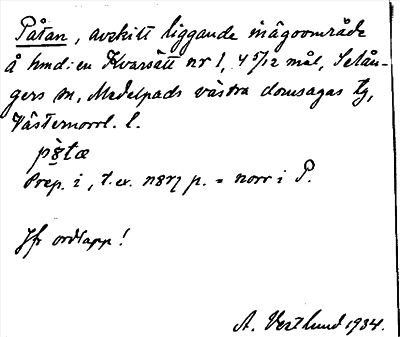 Påtan, avskilt liggande inägoområde
å hmd: en Kvarsätt nr 1, 4 5/12 mål, Selån-
gers sn, Medelpads västra domsagas tg,
Västernorrl. l.
Prep. i, t. ex. p. = norr i P.
Jfr ordlapp!
A. Vestlund 1934.